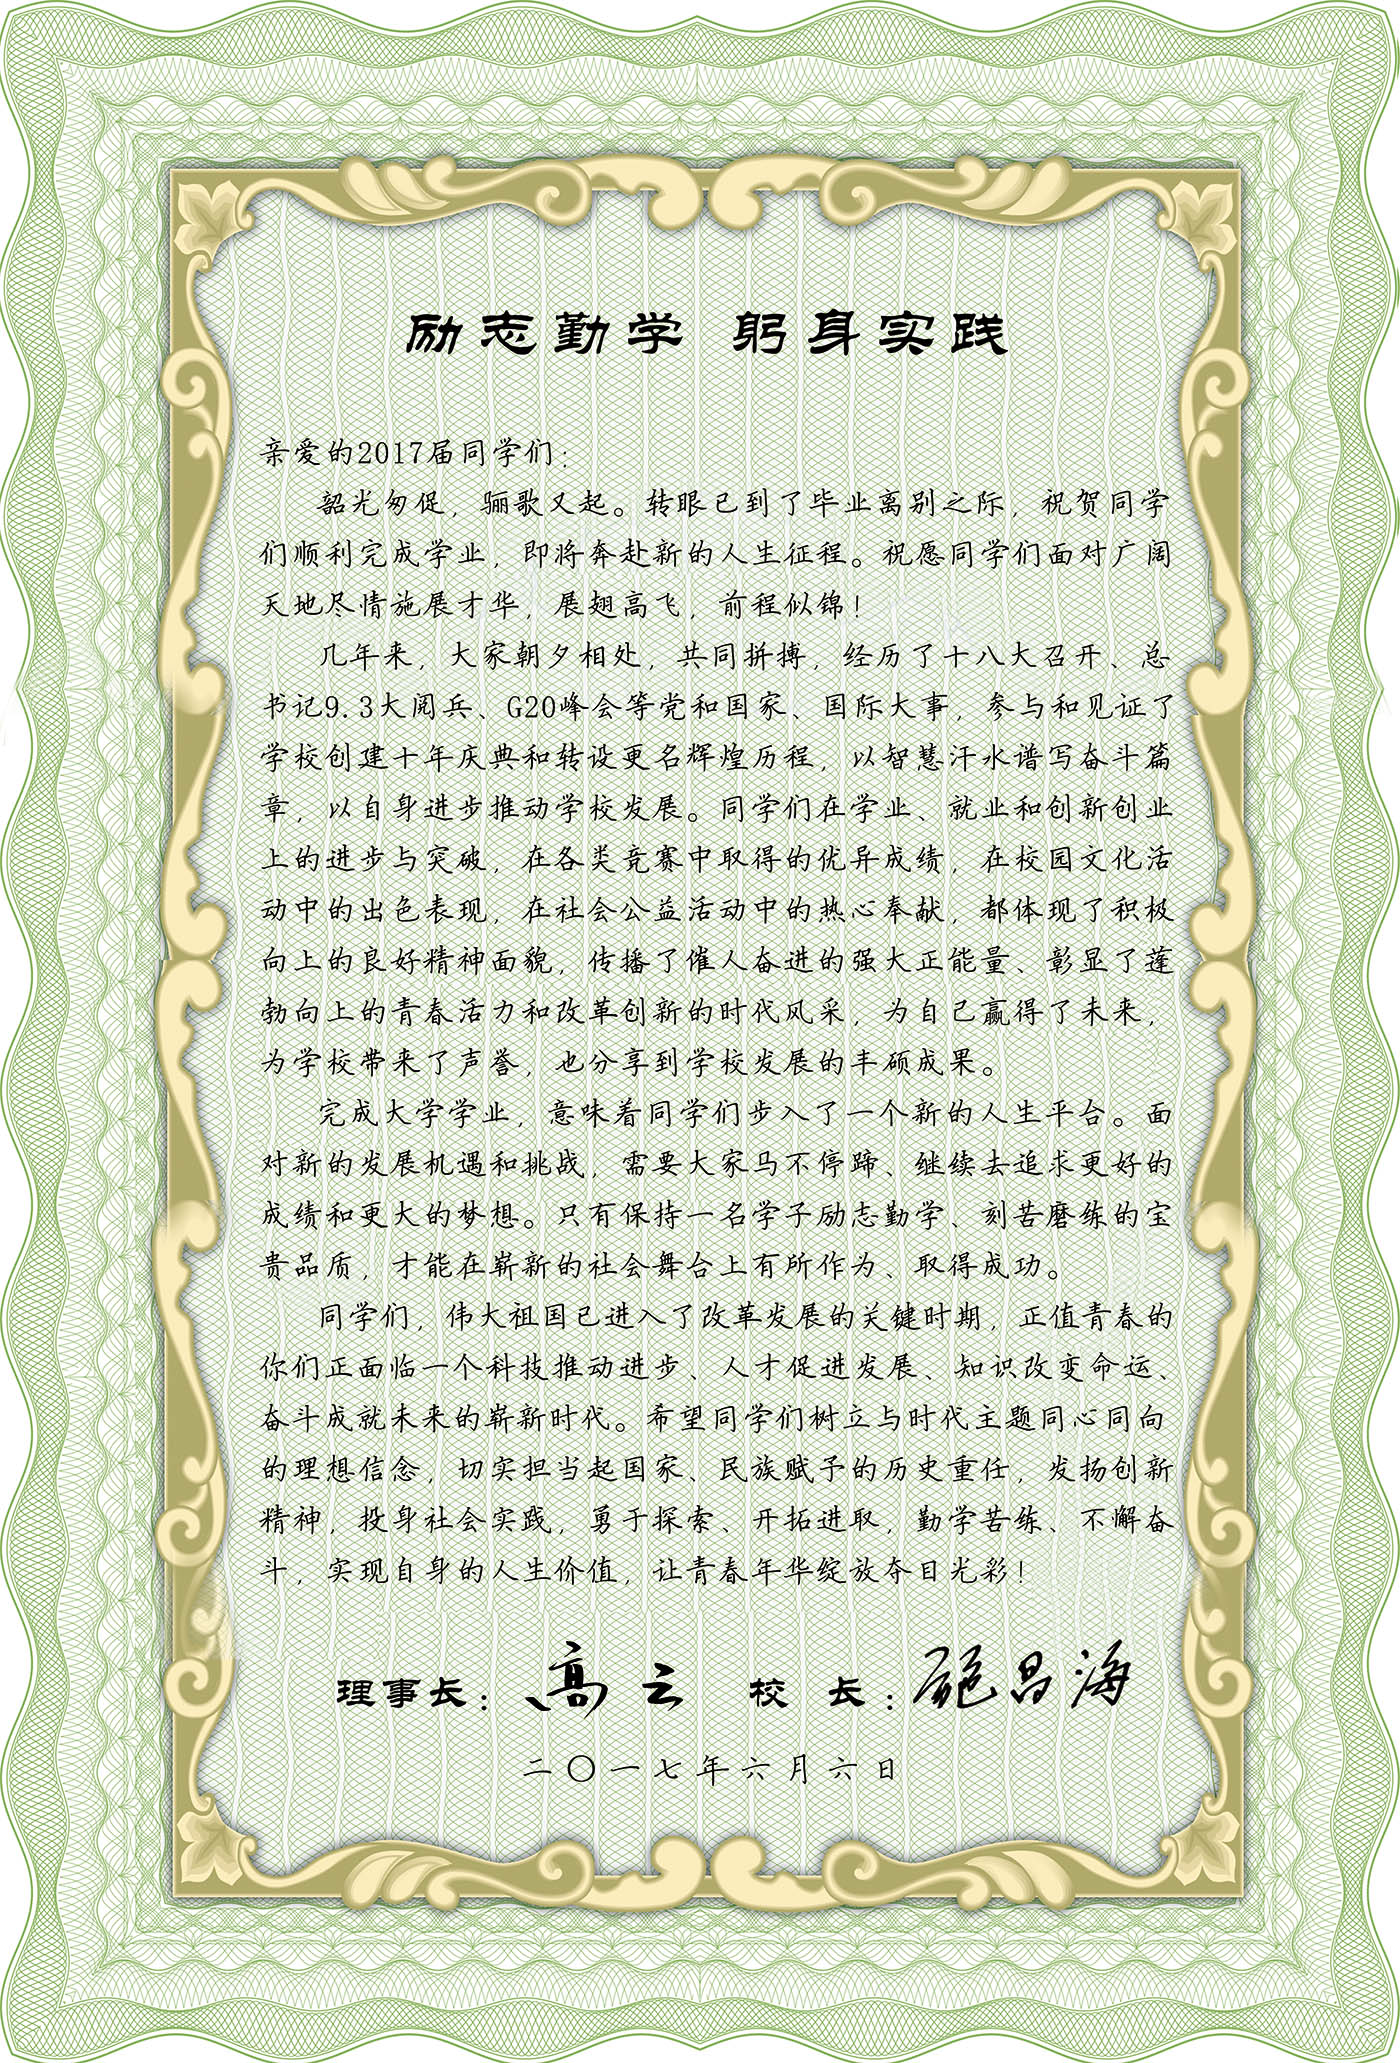 励志勤学 躬身实践
亲爱的2017届同学们：
韶光匆促，骊歌又起。转眼已到了毕业离别之际，祝贺同学
们顺利完成学业，即将奔赴新的人生征程。祝愿同学们面对广阔
天地尽情施展才华，展翅高飞，前程似锦！
几年来，大家朝夕相处，共同拼搏，经历了十八大召开、总
书记9.3大阅兵、G20峰会等党和国家、国际大事，参与和见证了
学校创建十年庆典和转设更名辉煌历程，以智慧汗水谱写奋斗篇
章，以自身进步推动学校发展。同学们在学业、就业和创新创业
上的进步与突破，在各类竞赛中取得的优异成绩，在校园文化活
动中的出色表现，在社会公益活动中的热心奉献，都体现了积极
向上的良好精神面貌，传播了催人奋进的强大正能量、彰显了蓬
勃向上的青春活力和改革创新的时代风采，为自己赢得了未来，
为学校带来了声誉，也分享到学校发展的丰硕成果。
完成大学学业，意味着同学们步入了一个新的人生平台。面
对新的发展机遇和挑战，需要大家马不停蹄、继续去追求更好的
成绩和更大的梦想。只有保持一名学子励志勤学、刻苦磨练的宝
贵品质，才能在崭新的社会舞台上有所作为、取得成功。
同学们，伟大祖国已进入了改革发展的关键时期，正值青春的
你们正面临一个科技推动进步、人才促进发展、知识改变命运、
奋斗成就未来的崭新时代。希望同学们树立与时代主题同心同向
的理想信念，切实担当起国家、民族赋予的历史重任，发扬创新
精神，投身社会实践，勇于探索、开拓进取，勤学苦练、不懈奋
斗，实现自身的人生价值，让青春年华绽放夺目光彩！
理事长：高云 校 长：施昌海
二〇一七年六月六日